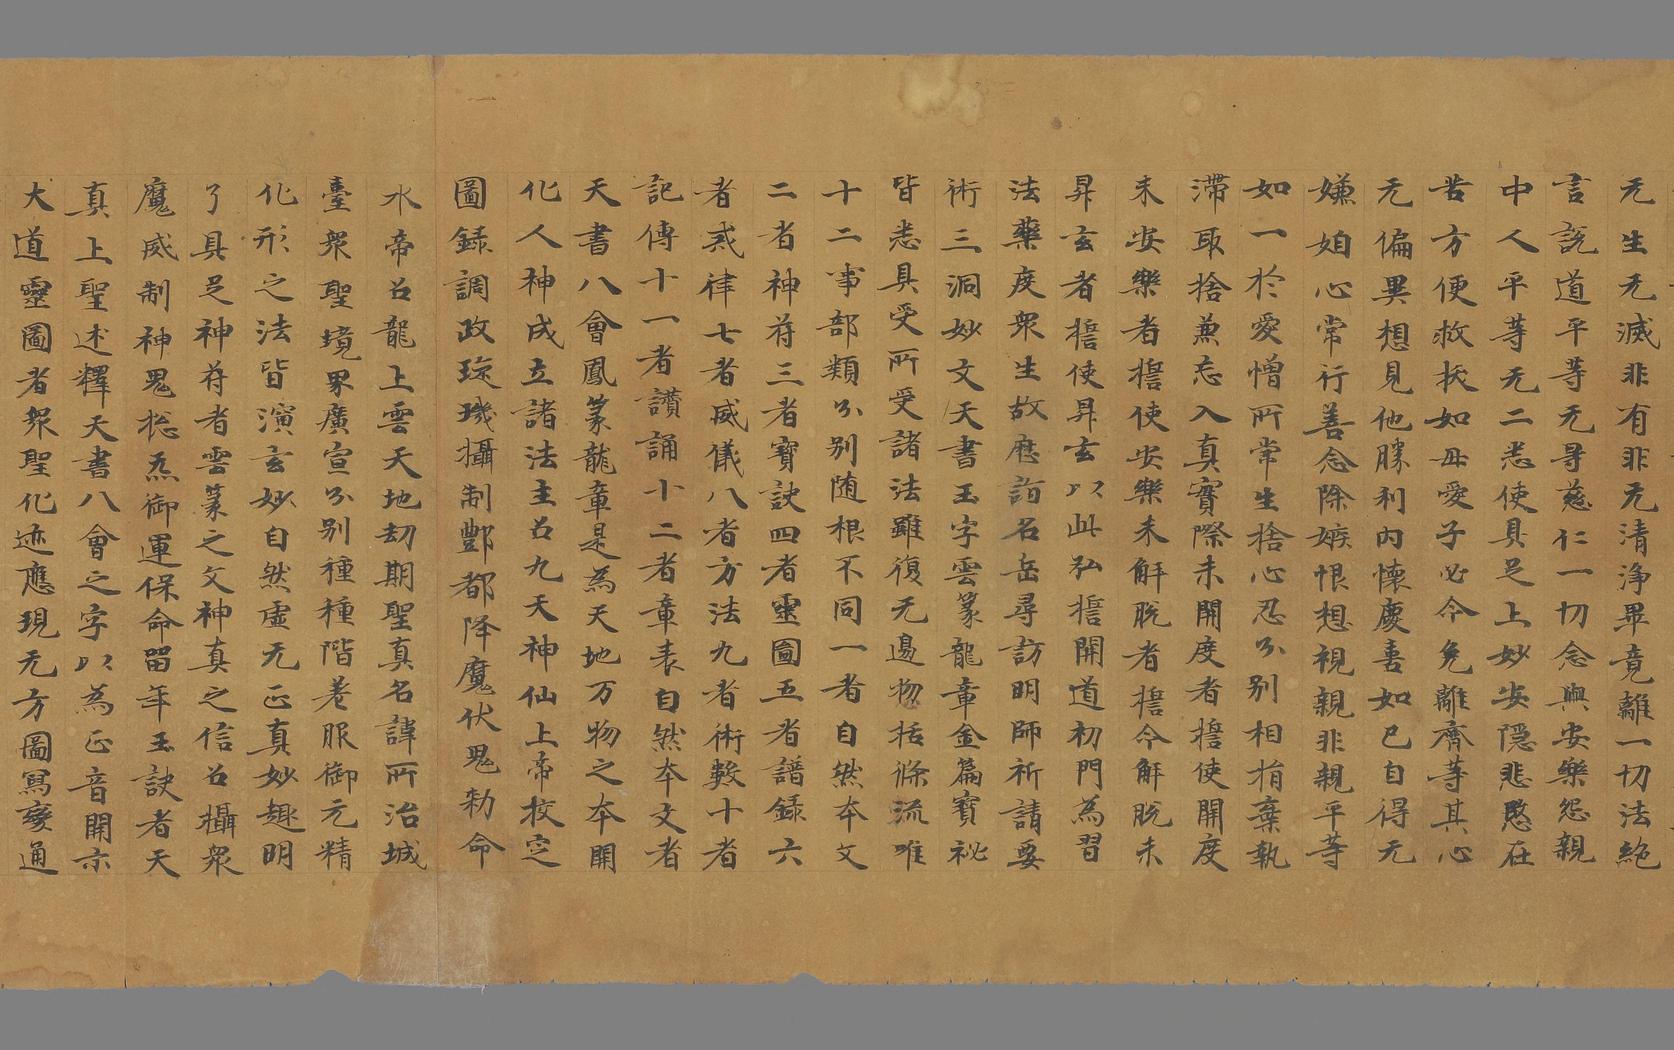 无生无滅非有非无清淨畢竟離一切法絕
言說道平等无㝵慈仁一切念與安樂怨親
中人平等无二悉使具足上妙安隱悲愍在
苦方便救拔如母愛子必令免離齊等其心
无偏異想見他勝利內懷慶喜如己自得无
嫌妒心常行善念除嫉恨想視親非親平等
如一於愛憎所常生捨心忍不別相捐棄執
滯取捨兼忘入真實際未開度者擔使開度
未安樂者擔使安樂未解脫者擔令解脫未
昇玄者擔使昇玄以此弘擔開道初門為習
法藥度衆生故應詣名岳尋訪明師祈請要
術三洞妙文天書玉字雲篆龍章金篇寶祕
皆悉具受所受諸法雖復无邊物括條流唯
十二事部類分別随根不同一者自然本文
二者神苻三者寶訣四者靈圖五者譜錄六
者戒律七者威儀八者方法九者術數十者
記傳十一者讚誦十二者章表自然本文者
天書八會鳳篆龍章是為天地万物之本開
化人神成立諸法主召九天神仙上帝校定
圖錄調政琁璣攝制酆都降魔伏鬼勑命
水帝召龍上雲天地劫期聖真名諱所治城
臺衆聖境界廣宣分別種種階差服御元精
化形之法皆演玄妙自然虛无正真妙趣明
了具足神苻者雲篆之文神真之信召攝衆
魔威制神鬼揔炁御運保命留年玉訣者天
真上聖述釋天書八會之字以為正音開示
大道靈圖者衆聖化迹應現无方圖寫變通